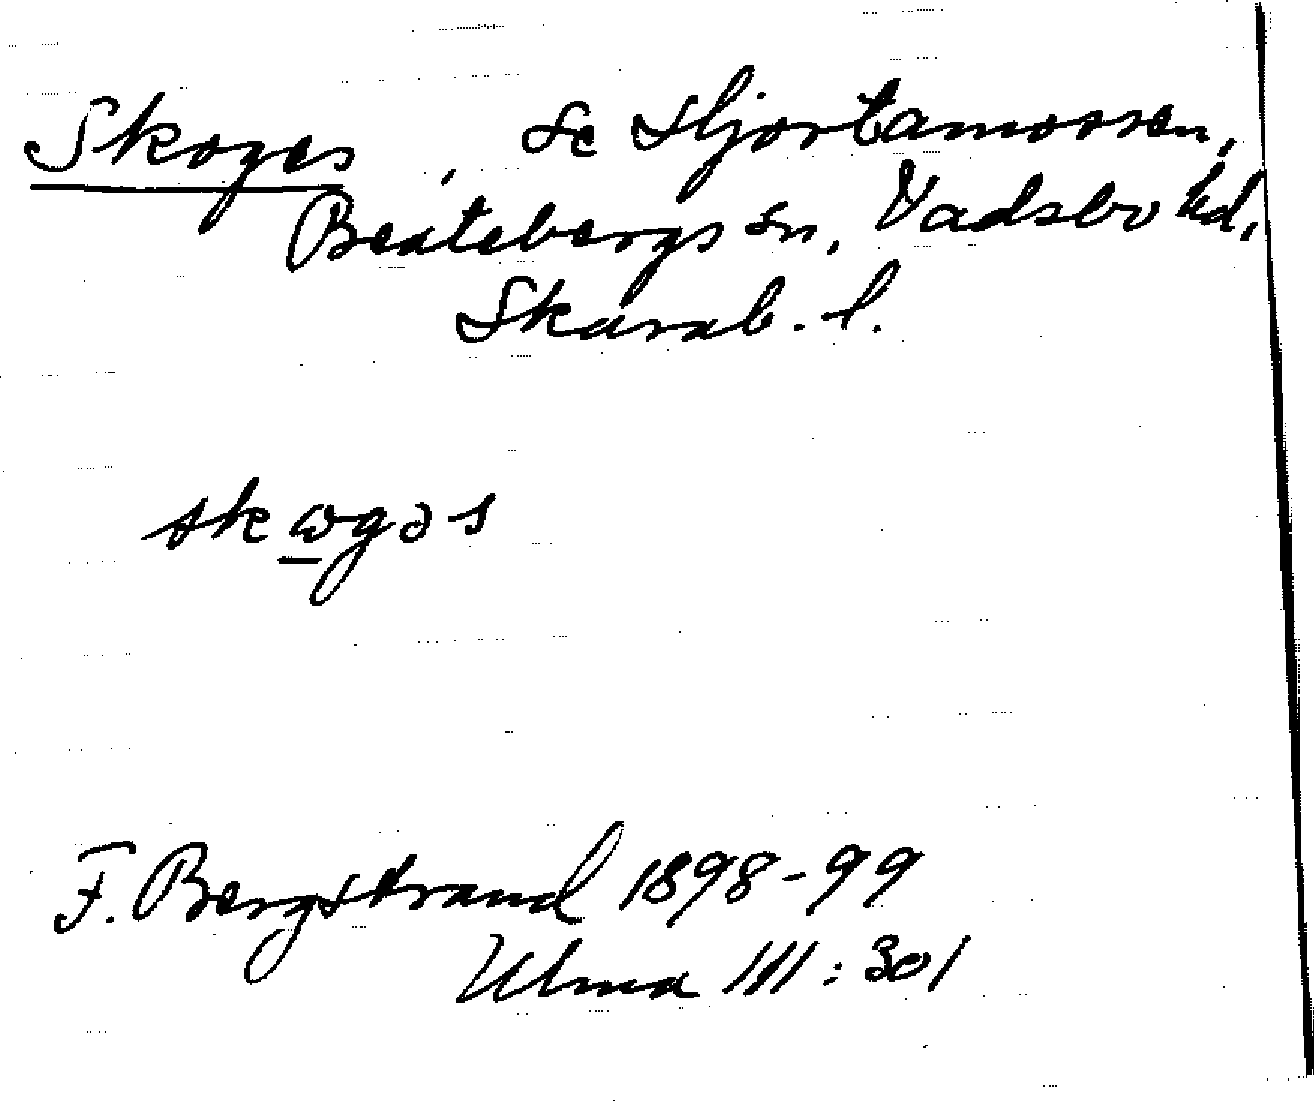 Skoges, Se Hjortamossen,
Beatebergs sn, Vadsbo hd,
Skarab. l.
skωgəs
F. Bergstrand 1898-99
Ulma 111:301